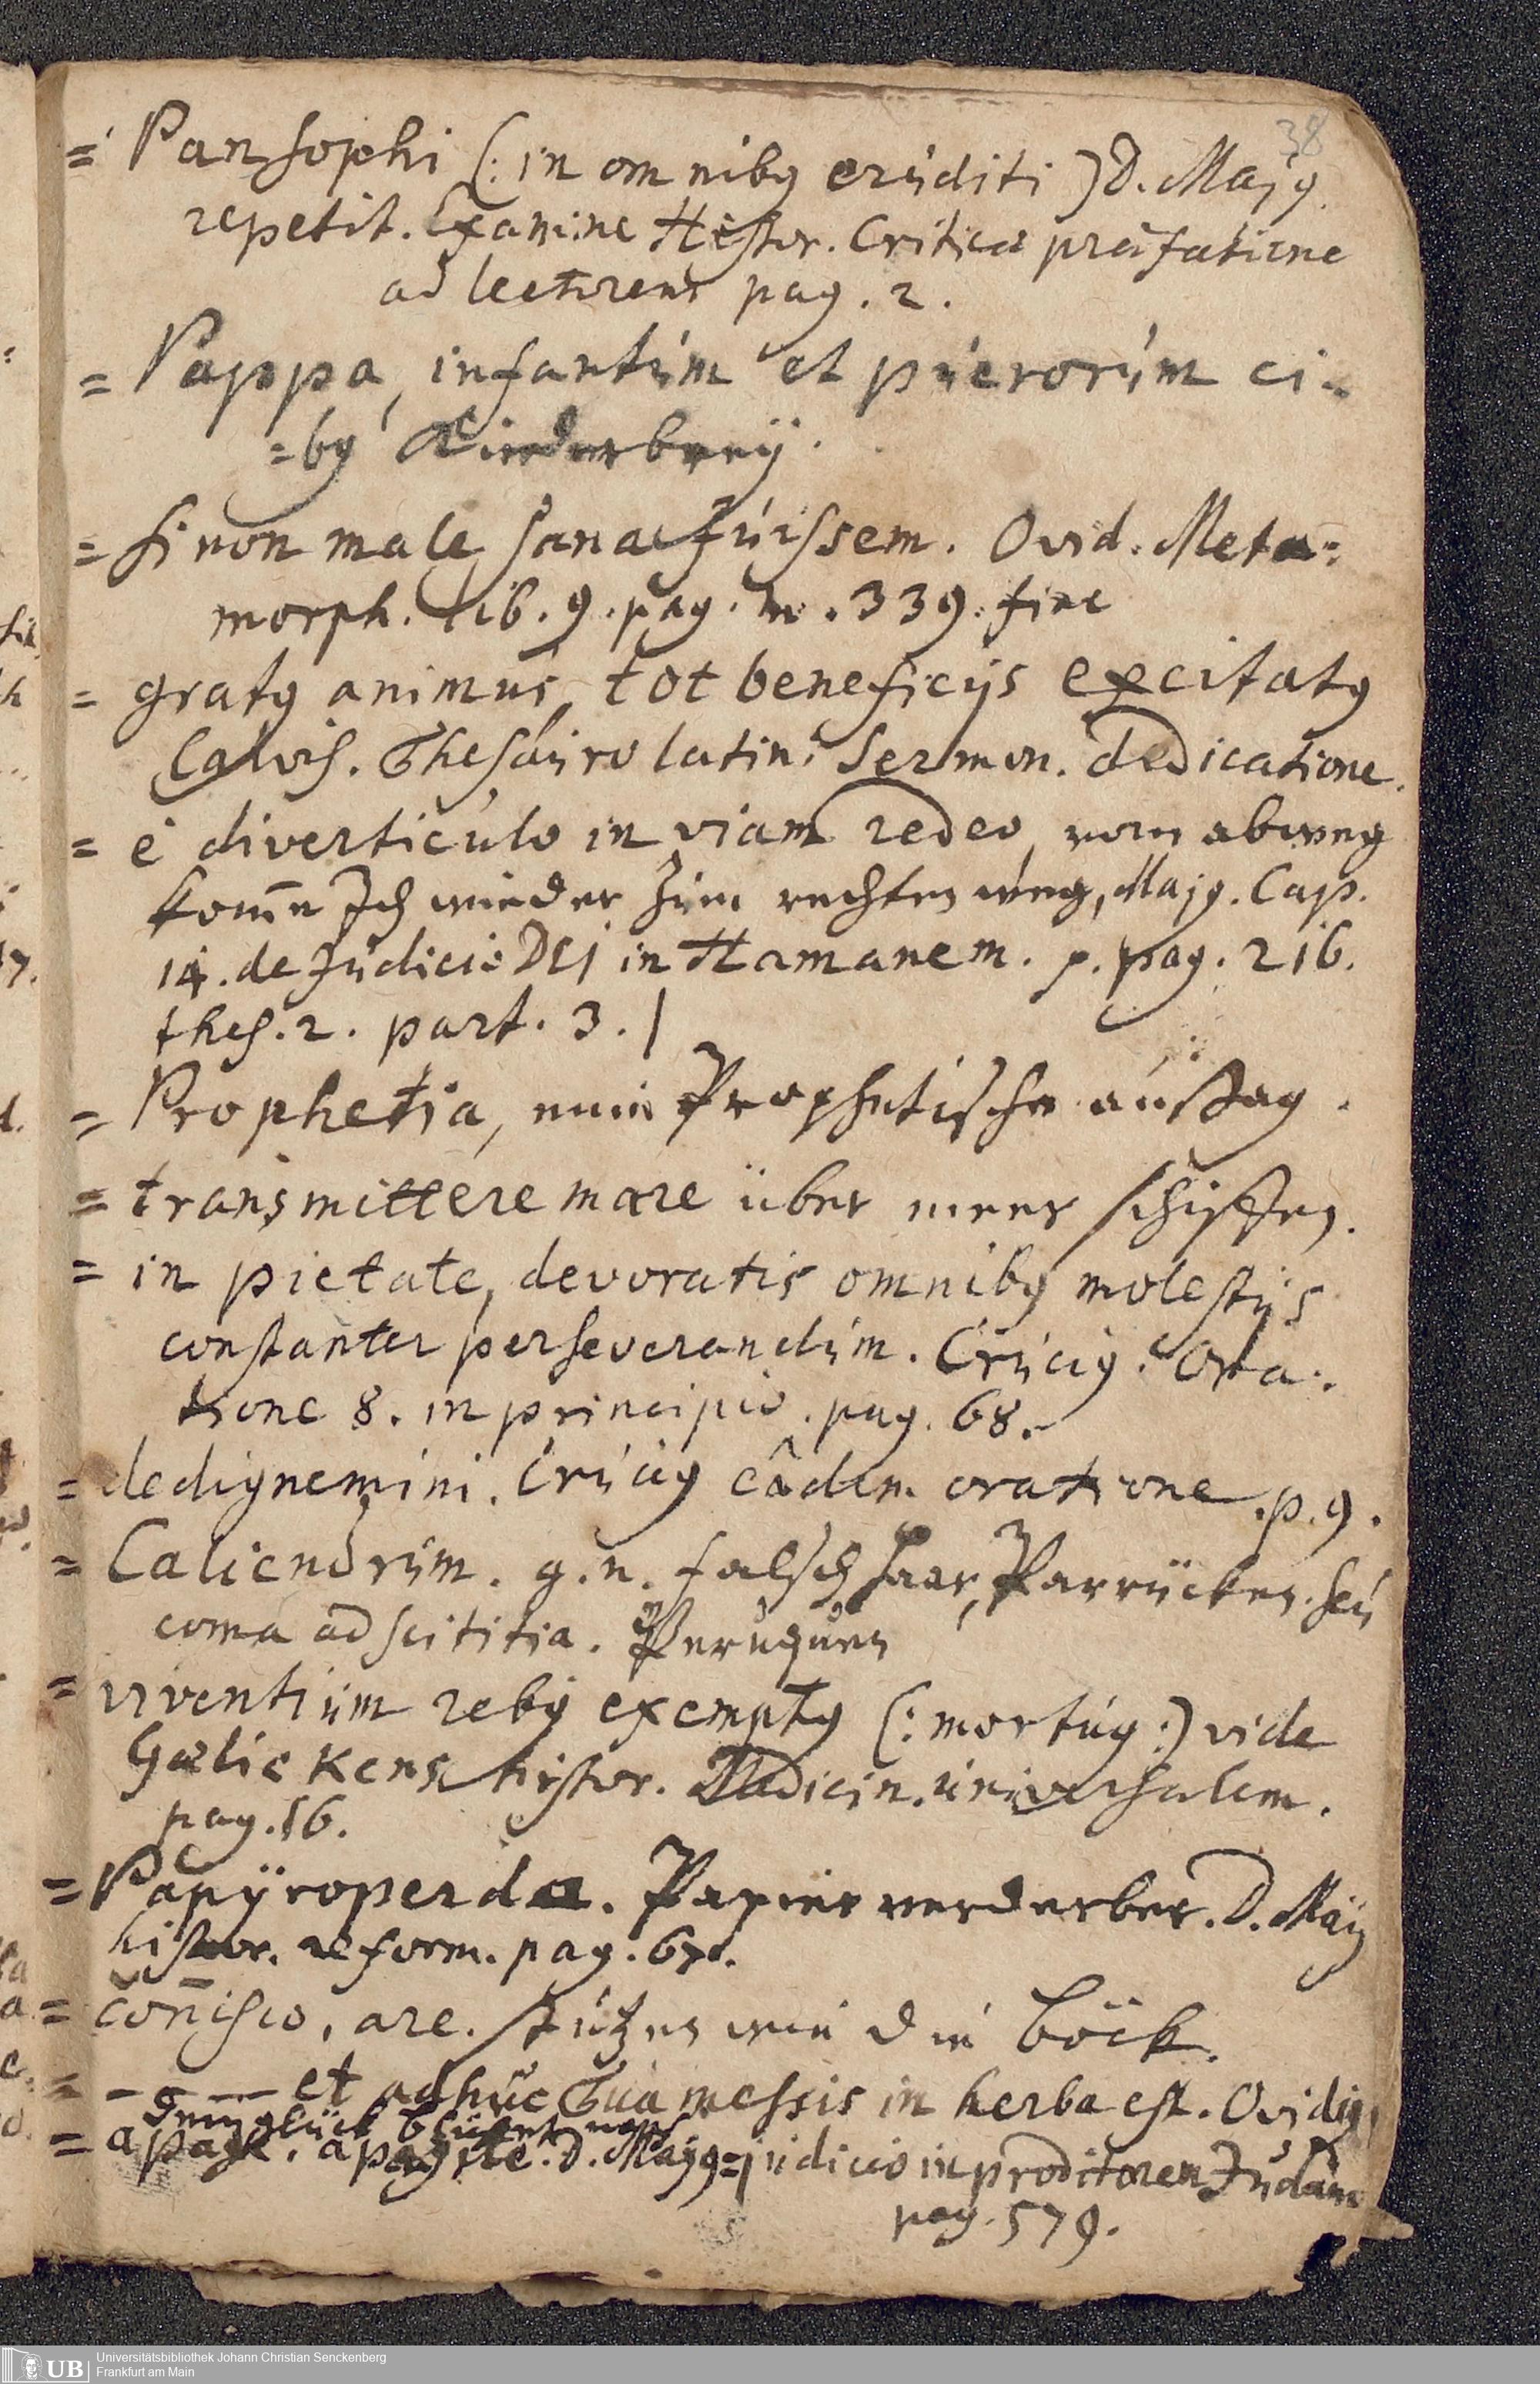 38
= Pansophi (: in omnibꝫ eruditi ) D. Majꝫ.
repetit. Examine Histor. Criticæ præfatione
ad lectorem pag. 2.
= Pappa, infantum et puerorum ci-
=bꝫ Kinderbreÿ.
= si non male sana fuissem. Ovid. Meta=
morph. Lib. 9. pag. m. 339. fine
= gratꝫ animus, tot beneficijs excitatꝫ
Calvis. Thesauro latini Sermon. dedicatione.
= è diverticulo in viam redeo, vom abweg
kom̄e Ich wieder zum rechten weg, Majꝫ. Cap.
14. de Judicio DEI in Hamanem. p. pag. 216.
thes. 2. part. 3. /
= Prophetia, eine Prophetische aussag.
= transmittere mare über meer schiffen.
= in pietate, devoratis omnibꝫ molestijs
constanter perseverandum. Crucig. Ora=
tione 8. in principio. pag. 68.
= dedignemini. Crucig eâdem oratione. p. 9.
= Caliendrum. g. n. falsch haar, Parrücken. seu
coma adscititia. Peruquen
= viventium rebꝫ exemptꝫ (: mortuꝫ :) vide
Gœlickens histor. Medicin. universalem.
pag. 16.
= Papÿroperda. Papier verderber. D. Maij
histor. reform. pag.
= con̄isco, are. stutzen wie die böck.
= - - - et adhuc Tua messis in herba est. Ovidiꝫ
Dein glück blühet noch
= apage. apagite. D. Majꝫ = judicio in proditorem Judam
pag. 579.
UB
Universitätsbibliothek Johann Christian Senckenberg
Frankfurt am Main